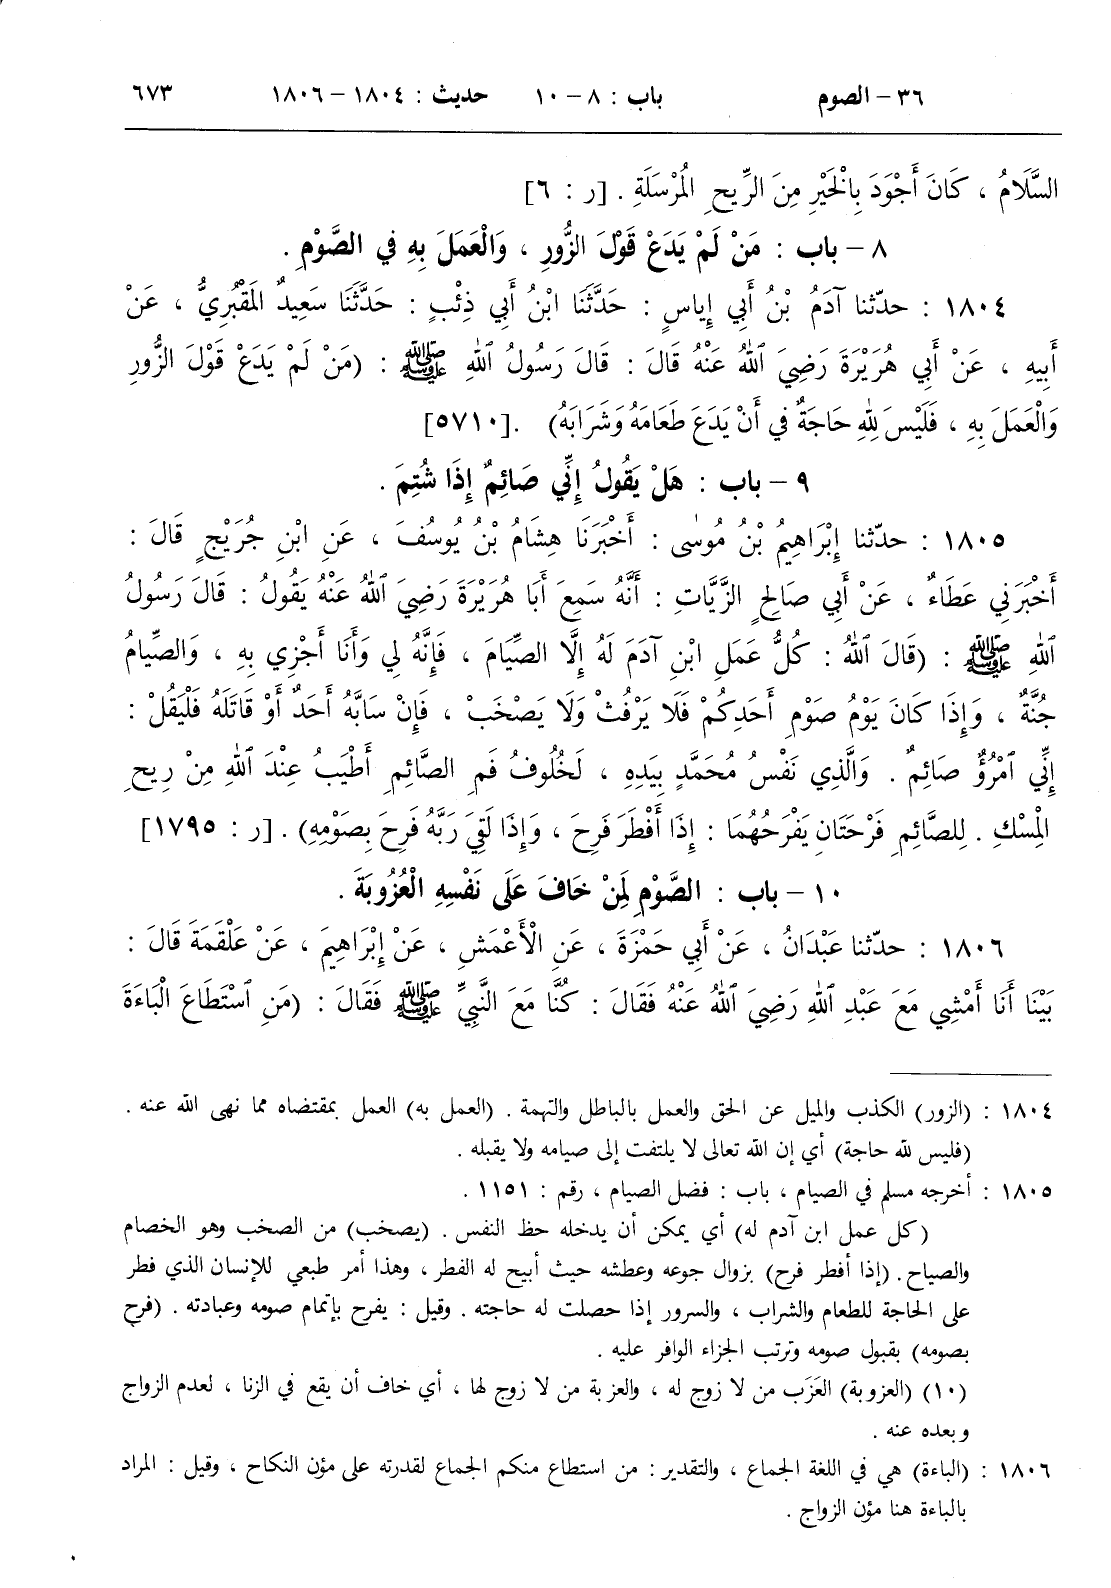 ٣٦ – الصوم باب : ٨ – ١٠ حديث : ١٨٠٤ – ١٨٠٦ ٦٧٣
السَّلَامُ ، كَانَ أَجْوَدَ بِالْخَيْرِ مِنَ الرِّيحِ الْمُرْسَلَةِ . [ر : ٦]
٨ – باب : مَنْ لَمْ يَدَعْ قَوْلَ الزُّورِ ، وَالْعَمَلَ بِهِ فِي الصَّوْمِ .
١٨٠٤ : حدّثنا آدَمُ بْنُ أَبِي إِياسٍ : حَدَّثَنَا ابْنُ أَبِي ذِئْبٍ : حَدَّثَنَا سَعِيدٌ الْمَقْبُرِيُّ ، عَنْ
أَبِيهِ ، عَنْ أَبِي هُرَيْرَةَ رَضِيَ ٱللهُ عَنْهُ قَالَ : قَالَ رَسُولُ ٱللهِ ﷺ : (مَنْ لَمْ يَدَعْ قَوْلَ الزُّورِ
وَالْعَمَلَ بِهِ ، فَلَيْسَ لِلهِ حَاجَةٌ فِي أَنْ يَدَعَ طَعَامَهُ وَشَرَابَهُ) . [٥٧١٠]
٩ – باب : هَلْ يَقُولُ إِنِّي صَائِمٌ إِذَا شُتِمَ .
١٨٠٥ : حدّثنا إِبْرَاهِيمُ بْنُ مُوسٰى : أَخْبَرَنَا هِشَامُ بْنُ يُوسُفَ ، عَنِ ابْنِ جُرَيْجٍ قَالَ :
أَخْبَرَنِي عَطَاءٌ ، عَنْ أَبِي صَالِحٍ الزَّيَّاتِ : أَنَّهُ سَمِعَ أَبَا هُرَيْرَةَ رَضِيَ ٱللهُ عَنْهُ يَقُولُ : قَالَ رَسُولُ
ٱللهِ ﷺ : (قَالَ ٱللهُ : كُلُّ عَمَلِ ابْنِ آدَمَ لَهُ إِلَّا الصِّيَامَ ، فَإِنَّهُ لِي وَأَنَا أَجْزِي بِهِ ، وَالصِّيَامُ
جُنَّةٌ ، وَإِذَا كَانَ يَوْمُ صَوْمِ أَحَدِكُمْ فَلَا يَرْفُثْ وَلَا يَصْخَبْ ، فَإِنْ سَابَّهُ أَحَدٌ أَوْ قَاتَلَهُ فَلْيَقُلْ :
إِنِّي ٱمْرُؤٌ صَائِمٌ . وَالَّذِي نَفْسُ مُحَمَّدٍ بِيَدِهِ ، لَخُلُوفُ فَمِ الصَّائِمِ أَطْيَبُ عِنْدَ ٱللهِ مِنْ رِيحِ
الْمِسْكِ . لِلصَّائِمِ فَرْحَتَانِ يَفْرَحُهُمَا : إِذَا أَفْطَرَ فَرِحَ ، وَإِذَا لَقِيَ رَبَّهُ فَرِحَ بِصَوْمِهِ) . [ر : ١٧٩٥]
١٠ – باب : الصَّوْمِ لِمَنْ خَافَ عَلَى نَفْسِهِ الْعُزُوبَةَ .
١٨٠٦ : حدّثنا عَبْدَانُ ، عَنْ أَبِي حَمْزَةَ ، عَنِ الْأَعْمَشِ ، عَنْ إِبْرَاهِيمَ ، عَنْ عَلْقَمَةَ قَالَ :
بَيْنَا أَنَا أَمْشِي مَعَ عَبْدِ ٱللهِ رَضِيَ ٱللهُ عَنْهُ فَقَالَ : كُنَّا مَعَ النَّبِيِّ ﷺ فَقَالَ : (مَنِ ٱسْتَطَاعَ الْبَاءَةَ
١٨٠٤ : (الزور) الكذب والميل عن الحق والعمل بالباطل والتهمة . (العمل به) العمل بمقتضاه مما نهى الله عنه .
(فليس لله حاجة) أي إن الله تعالى لا يلتفت إلى صيامه ولا يقبله .
١٨٠٥ : أخرجه مسلم في الصيام ، باب : فضل الصيام ، رقم : ١١٥١ .
(كل عمل ابن آدم له) أي يمكن أن يدخله حظ النفس . (يصخب) من الصخب وهو الخصام
والصياح . (إذا أفطر فرح) بزوال جوعه وعطشه حيث أبيح له الفطر ، وهذا أمر طبعي للإنسان الذي فطر
على الحاجة للطعام والشراب ، والسرور إذا حصلت له حاجته . وقيل : يفرح بإتمام صومه وعبادته . (فرح
بصومه) بقبول صومه وترتب الجزاء الوافر عليه .
(١٠) (العزوبة) العَزَب من لا زوج له ، والعزبة من لا زوج لها ، أي خاف أن يقع في الزنا ، لعدم الزواج
وبعده عنه .
١٨٠٦ : (الباءة) هي في اللغة الجماع ، والتقدير : من استطاع منكم الجماع لقدرته على مؤن النكاح ، وقيل : المراد
بالباءة هنا مؤن الزواج .